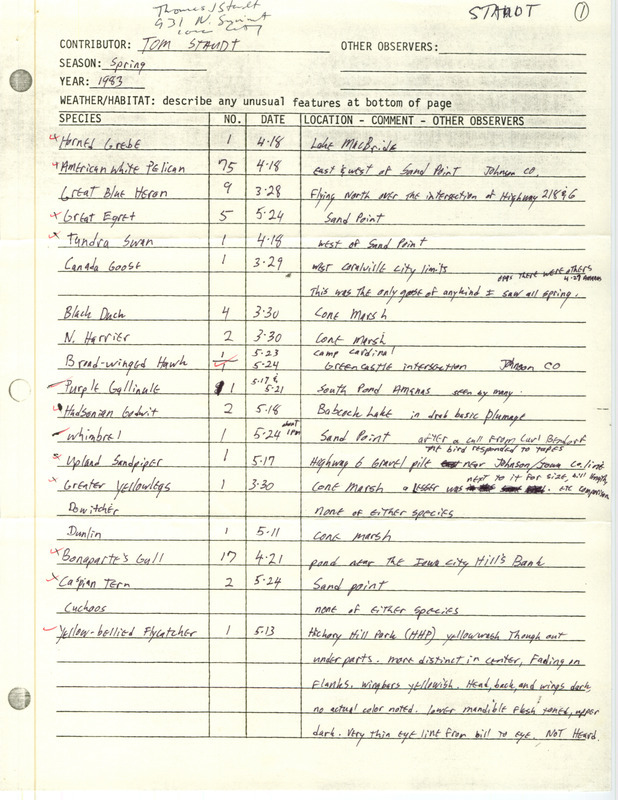 Thomas J Staudt
931 N. Summit
Iowa City
STAUDT 1
CONTRIBUTOR: TOM STAUDT OTHER OBSERVERS:
SEASON: Spring
YEAR: 1983
WEATHER/HABITAT: describe any unusual features at bottom of page
SPECIES NO. DATE LOCATION - COMMENT - OTHER OBSERVERS
Horned Grebe 1 4-18 Lake MacBride
American White Pelican 75 4-18 east & west of Sand Point Johnson CO.
Great Blue Heron 9 3-28 Flying North over the intersection of Highway 218 & 6
Great Egret 5 5-24 Sand Point
Tundra Swan 1 4-18 west of Sand Point
Canada Goose 1 3-29 west Coralville City limits
there were others
4-29 Amanas
This was the only goose of anykind I saw all spring.
Black Duck 4 3-30 Cone Marsh
N. Harrier 2 3-30 Cone Marsh
Broad-winged Hawk 1 5-23 Camp Cardinal
5-24 Greencastle intersection Johnson CO
Purple Gallinule 1 5-17 & 5-21 South Pond Amanas seen by many.
Hudsonian Godwit 2 5-18 Babcock Lake in drab basic plumage
Whimbrel 1 5-24 about 1 PM Sand Point after a call from Carl Bendorf
bird responded to tapes
Upland Sandpiper 1 5-17 Highway 6 Gravel pile near Johnson/Iowa Co. line
Greater Yellowlegs 1 3-30 Cone Marsh a lesser was next to it for size, bill length, etc comparison
Dowitcher none of either species
Dunlin 1 5-11 Cone marsh
Bonaparte's Gull 17 4-21 pond near the Iowa City Hill's Bank
Caspian Tern 2 5-24 Sand point
Cuckoos none of either species
Yellow-bellied Flycatcher 1 5-13 Hickory Hill Park (HHP) yellow wash though out
under parts. more distinct in center, fading on
flanks. wingbars yellowish. Head, back, and wings dark,
no actual color noted. lower mandible flesh toned, upper
dark. Very thin eye line from bill to eye. NOT Heard.